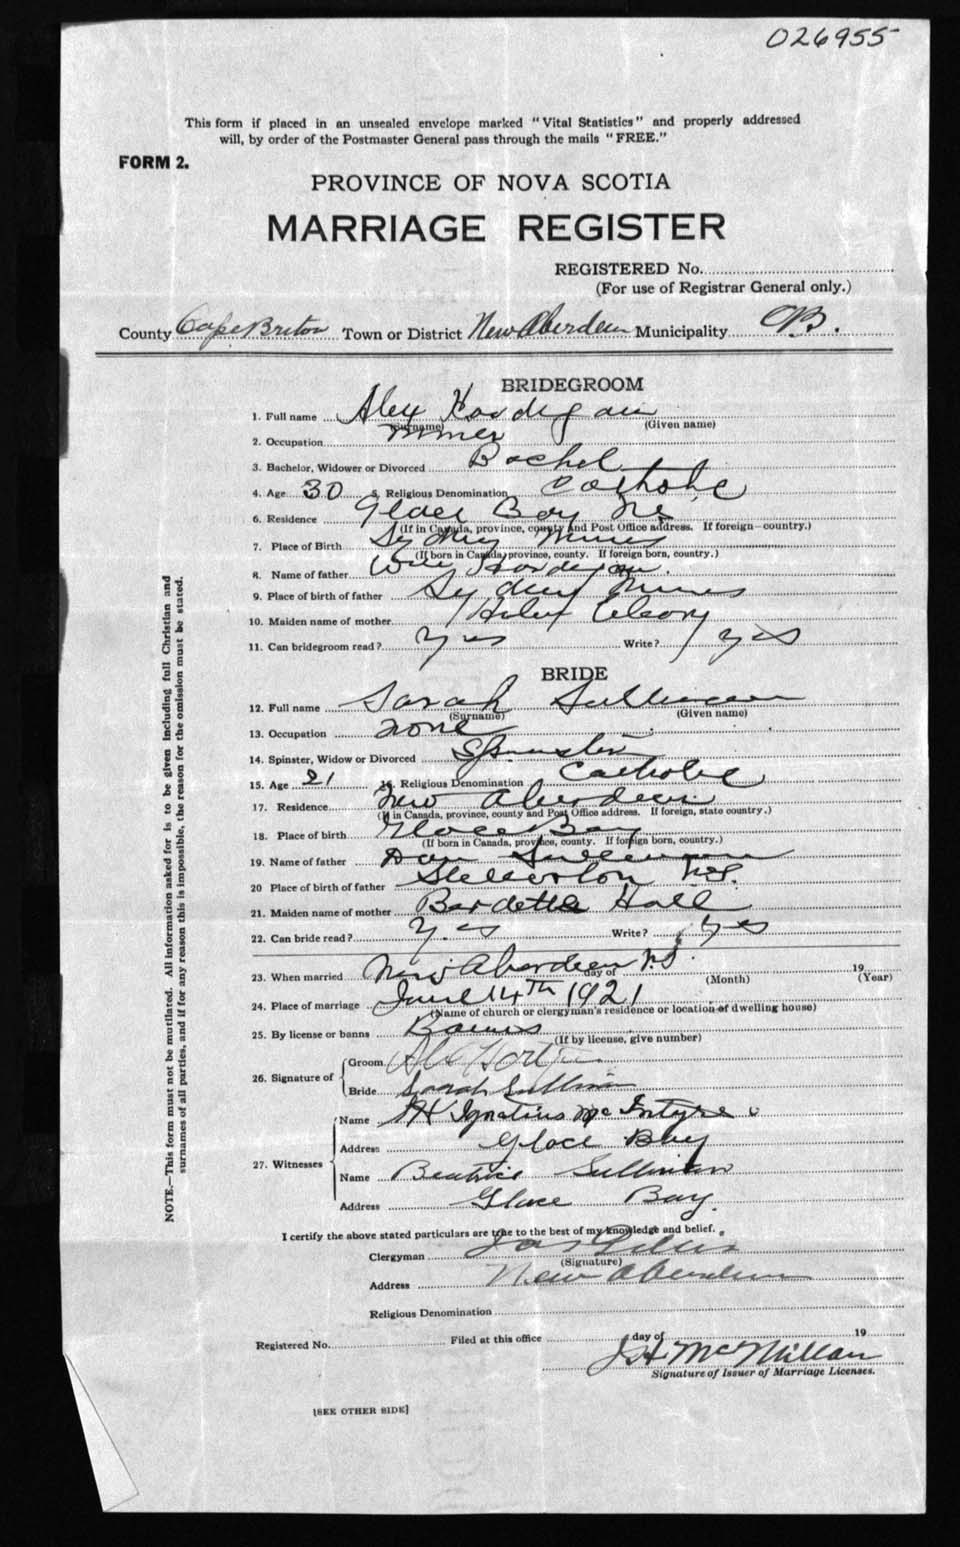 026955
This form if placed in an unsealed envelope marked "Vital Statistics" and properly addressed
will, by order of the Postmaster General pass through the mails "FREE."
FORM 2.
PROVINCE OF NOVA SCOTIA
MARRIAGE REGISTER
REGISTERED No.
(For use of Registrar General only.)
County Cape Briton Town or District New Aberdeen Municipality CB.
BRIDEGROOM
1. Full name Alex
(Surname) (Given name)
2. Occupation miner
3. Bachelor, Widower or Divorced Bachel
4. Age 30 5. Religious Denomination Catholic
6. Residence Glace Bay NS
(If in Canada, province, county and Post Office address. If foreign country.)
7. Place of Birth Sydney Mines
(If born in Canada, province, county. If foreign born, country.)
8. Name of father Will
9. Place of birth of father Sydney Mines
10. Maiden name of mother
11. Can bridegroom read? yes Write? yes
BRIDE
12. Full name Sarah Sullivan
(Surname) (Given name)
13. Occupation none
14. Spinster, Widow or Divorced Spinster
15. Age 21 16. Religious Denomination Catholic
17. Residence New Aberdeen
(If in Canada, province, county and Post Office address. If foreign, state country.)
18. Place of birth Glace Bay
(If born in Canada, province, county. If foreign born, country.)
19. Name of father Dan Sullivan
20 Place of birth of father Stellerton N.S.
21. Maiden name of mother Bardette Hall
22. Can bride read? yes Write? yes
23. When married New Aberdeen N.S. day of (Month) 19 (Year)
24. Place of marriage June 14TH 1921
(Name of church or clergyman's residence or location of dwelling house)
25. By license or banns Banns
(If by license, give number)
26. Signature of Groom
Bride Sarah Sullivan
27. Witnesses Name Ignatius McIntyre
Address Glace Bay
Name Beatrice Sullivan
Address Glace Bay.
I certify the above stated particulars are true to the best of my knowledge and belief.
Clergyman Jas Gillis
(Signature)
Address New Aberdeen
Religious Denomination
Registered No. Filed at this office day of 19
J H McMillan
Signature of Issuer of Marriage Licenses.
[SEE OTHER SIDE]
NOTE.—This form must not be mutilated. All information asked for is to be given including full Christian and
surnames of all parties, and if for any reason this is impossible, the reason for the omission must be stated.